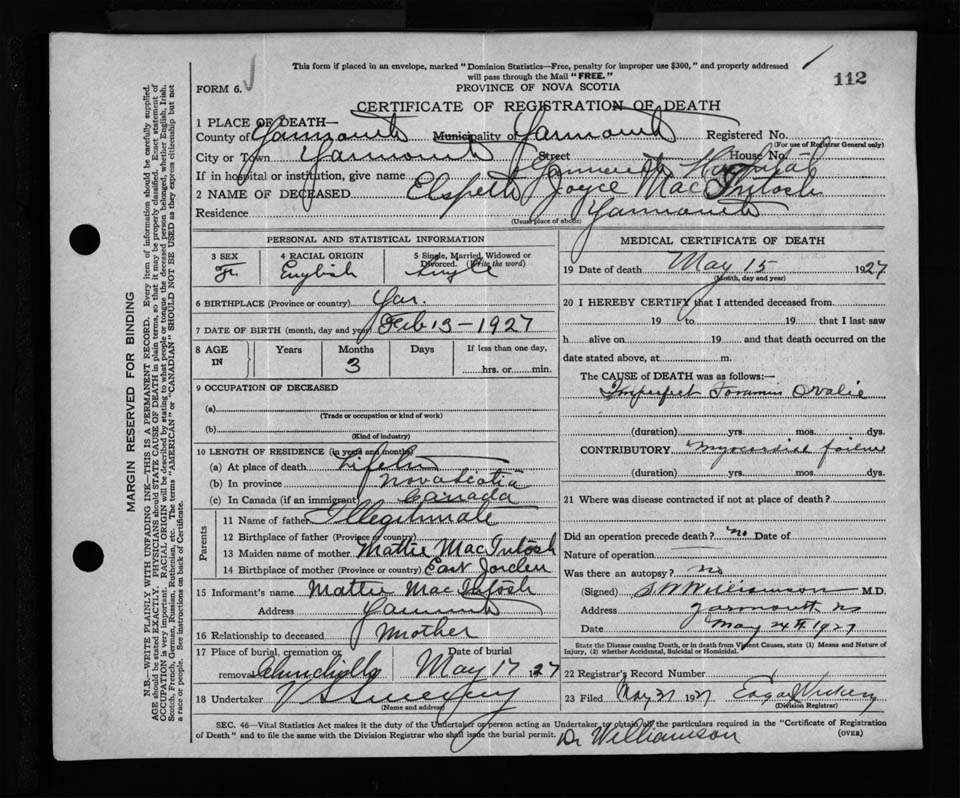 This form if placed in an envelope, marked "Dominion Statistics—Free, penalty for improper use $300," and properly addressed
will pass through the Mail "FREE."
112
FORM 6.
PROVINCE OF NOVA SCOTIA
CERTIFICATE OF REGISTRATION OF DEATH
1 PLACE OF DEATH—
County of Yarmouth Municipality of Yarmouth Registered No.
(For use of Registrar General only)
City or Town Yarmouth Street House No.
If in hospital or institution, give name Yarmouth Hospital
2 NAME OF DECEASED Elspeth Joyce MacIntosh
Residence Yarmouth
(Usual place of abode)
PERSONAL AND STATISTICAL INFORMATION
3 SEX 4 RACIAL ORIGIN 5 Single, Married, Widowed or Divorced. (Write the word)
English Single
6 BIRTHPLACE (Province or country) Yar.
7 DATE OF BIRTH (month, day and year) Feb 13-1927
8 AGE IN Years Months Days If less than one day,
3 hrs. or min.
9 OCCUPATION OF DECEASED
(a)
(Trade or occupation or kind of work)
(b)
(Kind of industry)
10 LENGTH OF RESIDENCE (in years and months)
(a) At place of death
(b) In province Nova Scotia
(c) In Canada (if an immigrant) Canada
Parents
11 Name of father Illegitimate
12 Birthplace of father (Province or country)
13 Maiden name of mother Mattie MacIntosh
14 Birthplace of mother (Province or country) East Jorden
15 Informant's name Mattie MacIntosh
Address Yarmouth
16 Relationship to deceased Mother
17 Place of burial, cremation or removal Date of burial
May 17 1927
18 Undertaker V S Sweeny
(Name and address)
MEDICAL CERTIFICATE OF DEATH
19 Date of death May 15 1927
(Month, day and year)
20 I HEREBY CERTIFY that I attended deceased from
19 to 19 that I last saw
h alive on 19 and that death occurred on the
date stated above, at m.
The CAUSE of DEATH was as follows:—
Imperfect Foramin Ovalie
(duration) yrs. mos. dys.
CONTRIBUTORY Myocardial failure
(duration) yrs. mos. dys.
21 Where was disease contracted if not at place of death?
Did an operation precede death? no Date of
Nature of operation
Was there an autopsy? no
(Signed) S W Williamson M.D.
Address Yarmouth, NS
Date May 24th 1927
State the Disease causing Death, or in death from Violent Causes, state (1) Means and Nature of
Injury, (2) whether Accidental, Suicidal or Homicidal.
22 Registrar's Record Number
23 Filed May 31 1927 Edgar
(Division Registrar)
SEC. 46—Vital Statistics Act makes it the duty of the Undertaker or person acting as Undertaker to obtain all the particulars required in the "Certificate of Registration
of Death" and to file the same with the Division Registrar who shall issue the burial permit.
(OVER)
Dr Williamson
MARGIN RESERVED FOR BINDING
N.B.—WRITE PLAINLY WITH UNFADING INK—THIS IS A PERMANENT RECORD. Every item of information should be carefully supplied.
AGE should be stated EXACTLY. PHYSICIANS should STATE CAUSE OF DEATH in plain terms, so that it may be properly classified. Exact statement of
OCCUPATION is very important. RACIAL ORIGIN will be described by stating to what people or tongue the deceased person belonged, whether English, Irish,
Scotch, French, German, Russian, Ruthenian, etc. The terms "AMERICAN" or "CANADIAN" SHOULD NOT BE USED as they express citizenship but not
a race or people. See instructions on back of Certificate.